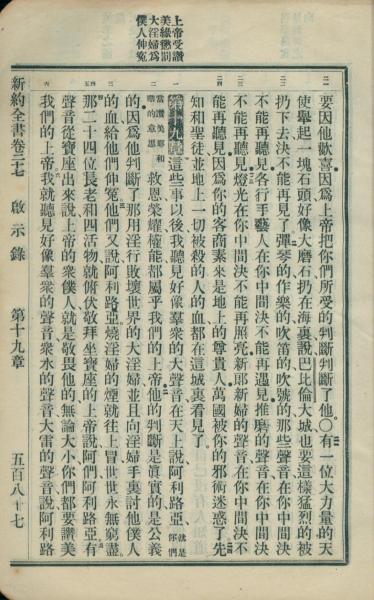 上帝受讚
美緣懲罰
大淫婦為
僕人伸冤
二一
要因他歡喜因為上帝把你們所受的判斷判斷了他〇有一位大力量的天
使舉起一塊石頭好像大磨石扔在海裏說巴比倫大城也要這樣猛烈的被
二二
扔下去決不能再見了彈琴的作樂的吹笛的吹號的那些聲音在你中間決
不能再聽見各行手藝人在你中間決不能再遇見推磨的聲音在你中間決
二三
不能再聽見燈光在你中間決不能再照亮新郎新婦的聲音在你中間決不
能再聽見因為你的客商素來是地上的尊貴人萬國被你的邪術迷惑了先
二四
知和聖徒並地上一切被殺的人的血都在這城裏看見了
一
第十九章 這些事以後我聽見好像羣衆的大聲音在天上說阿利路亞 就是你們
二
當讚美耶和
的意思 救恩榮耀權能都屬乎我們的上帝他的判斷是眞實的是公義
的因為他判斷了那用淫行敗壞世界的大淫婦並且向淫婦手裏討他僕人
三
的血給他們伸冤他們又說阿利路亞燒淫婦的煙就往上冒世世永無窮盡
四 五
那二十四位長老和四活物就俯伏敬拜坐寶座的上帝說阿們阿利路亞有
聲音從寶座出來說上帝的衆僕人就是敬畏他的無論大小你們都要讚美
六
我們的上帝我就聽見好像羣衆的聲音衆水的聲音大雷的聲音說阿利路
新約全書卷二七 啟示錄 第十九章 五百八十七